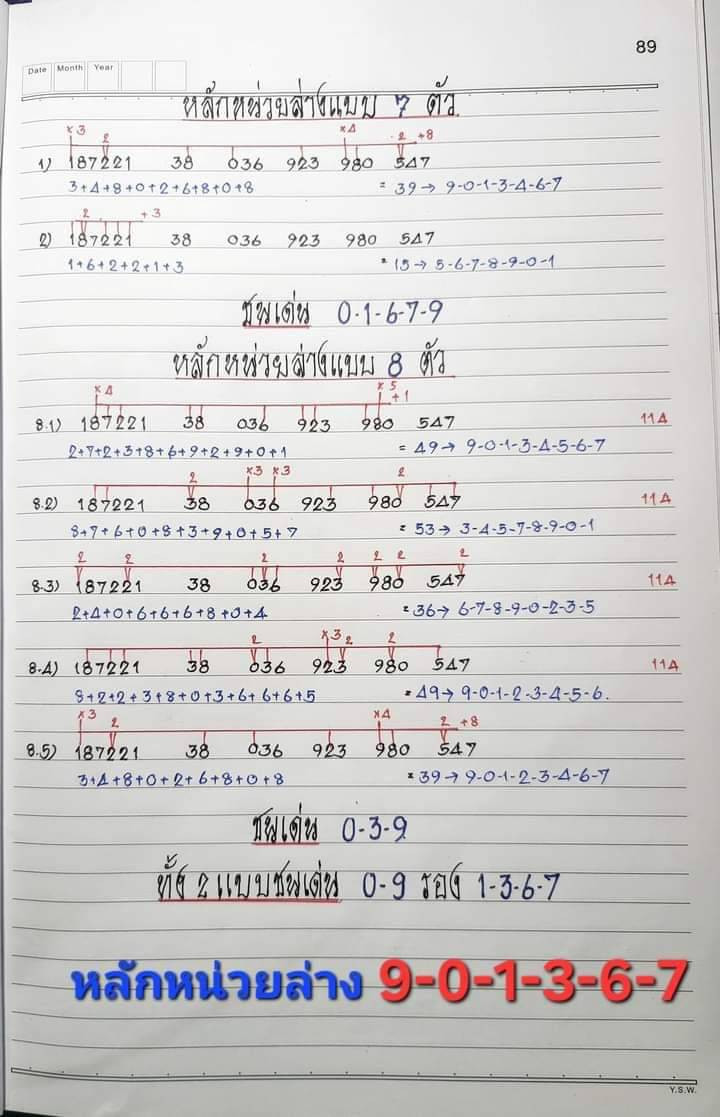 89
Date Month Year
หลักหน่วยล่างแบบ 7 ตัว
×3 2 ×4 2 +8
1) 187221 38 036 923 980 547
3+4+8+0+2+6+8+0+8 = 39→ 9-0-1-3-4-6-7
2 +3
2) 187221 38 036 923 980 547
1+6+2+2+1+3 = 15→ 5-6-7-8-9-0-1
ชนเด่น 0-1-6-7-9
หลักหน่วยล่างแบบ 8 ตัว
×4 ×5 +1
8.1) 187221 38 036 923 980 547 114
2+7+2+3+8+6+9+2+9+0+1 = 49→ 9-0-1-3-4-5-6-7
2 ×3 ×3 2
8.2) 187221 38 036 923 980 547 114
8+7+6+0+8+3+9+0+5+7 = 53→ 3-4-5-7-8-9-0-1
2 2 2 2 2 2 2
8.3) 187221 38 036 923 980 547 114
2+4+0+6+6+6+8+0+4 = 36→ 6-7-8-9-0-2-3-5
2 ×3 2 2
8.4) 187221 38 036 923 980 547 114
8+2+2+3+8+0+3+6+6+6+5 = 49→ 9-0-1-2-3-4-5-6.
×3 2 ×4 2 +8
8.5) 187221 38 036 923 980 547
3+4+8+0+2+6+8+0+8 = 39→ 9-0-1-2-3-4-6-7
ชนเด่น 0-3-9
ทั้ง 2 แบบชนเด่น 0-9 รอง 1-3-6-7
หลักหน่วยล่าง 9-0-1-3-6-7
Y.S.W.